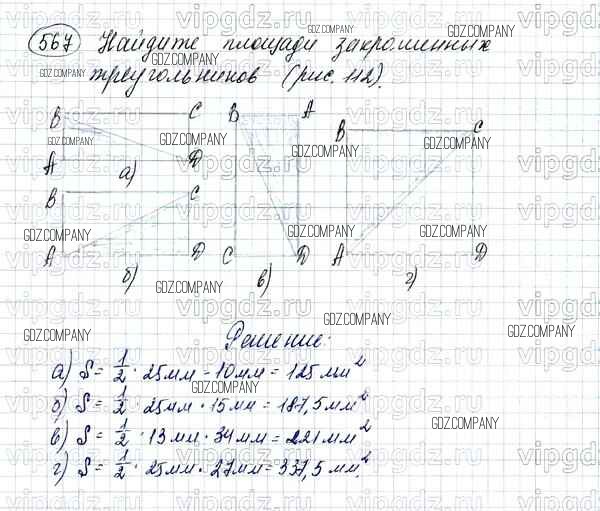 567 Найдите площади закрашенных
треугольников (рис. 112).
B C
A D
а)
B C
A D
б)
B A
C D
в)
B C
A D
г)
Решение:
а) S = 1/2 · 25мм · 10мм = 125 мм²
б) S = 1/2 · 25мм · 15мм = 187,5мм²
в) S = 1/2 · 13мм · 34мм = 221мм²
г) S = 1/2 · 25мм · 27мм = 337,5 мм²
vipgdz.ru
GDZ.COMPANY